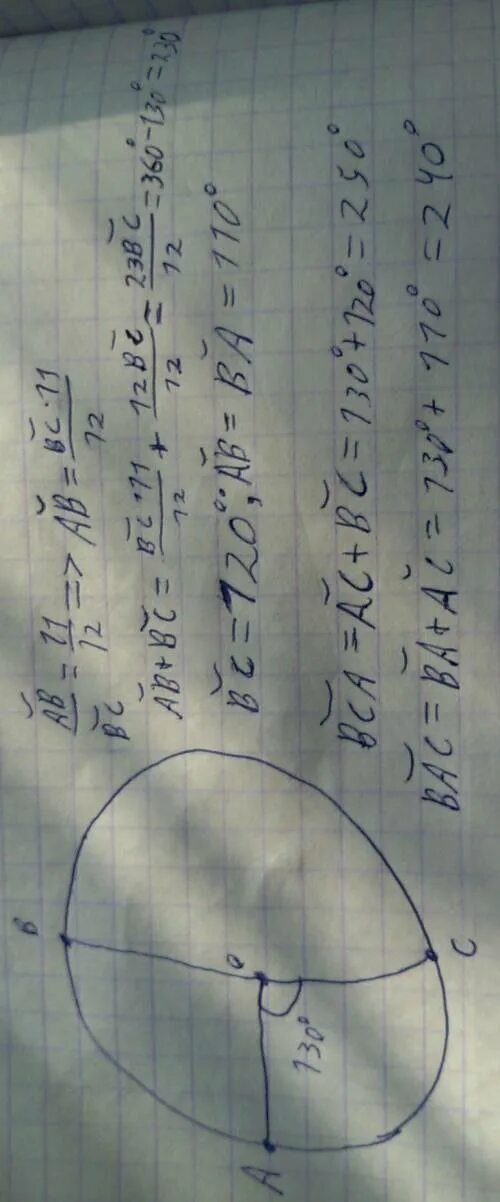 B
A
O
C
130°
A͝B/B͝C = 11/12 => A͝B = B͝C·11/12
A͝B+B͝C = B͝C·11/12 + 12B͝C/12 = 23B͝C/12 = 360°-130°=230°
B͝C=120°; A͝B=B͝A=110°
B͝CA=A͝C+B͝C=130°+120°=250°
B͝AC=B͝A+A͝C=130°+110°=240°